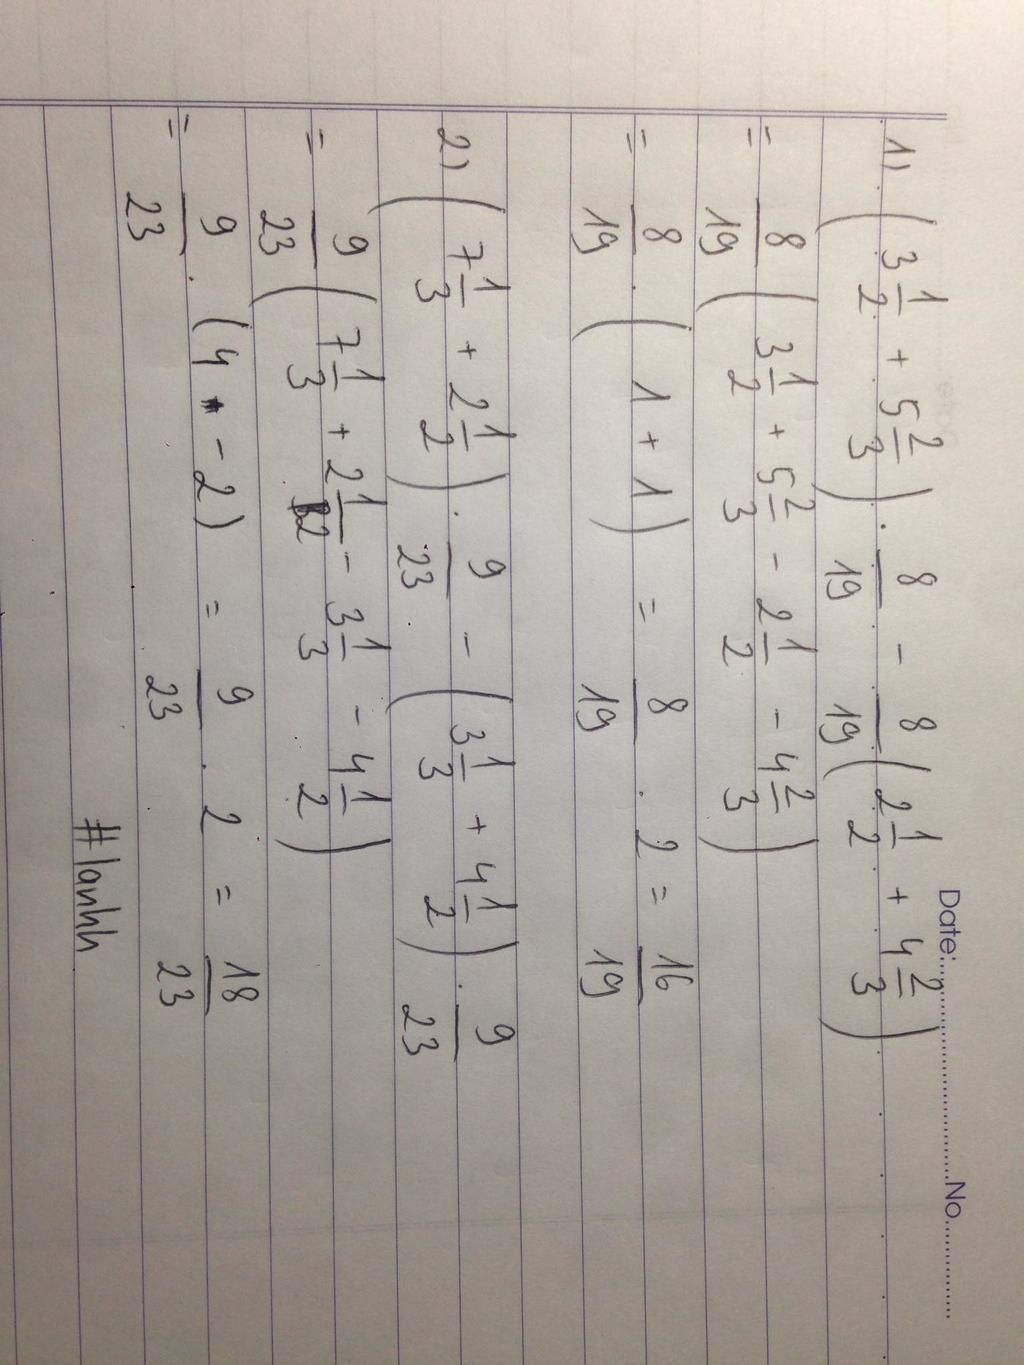 Date: No.
1) (3 1/2 + 5 2/3) . 8/19 - 8/19 (2 1/2 + 4 2/3)
= 8/19 (3 1/2 + 5 2/3 - 2 1/2 - 4 2/3)
= 8/19 . (1 + 1) = 8/19 . 2 = 16/19
2) (7 1/3 + 2 1/2) . 9/23 - (3 1/3 + 4 1/2) . 9/23
= 9/23 (7 1/3 + 2 1/2 - 3 1/3 - 4 1/2)
= 9/23 . (4 - 2) = 9/23 . 2 = 18/23
#lanhh